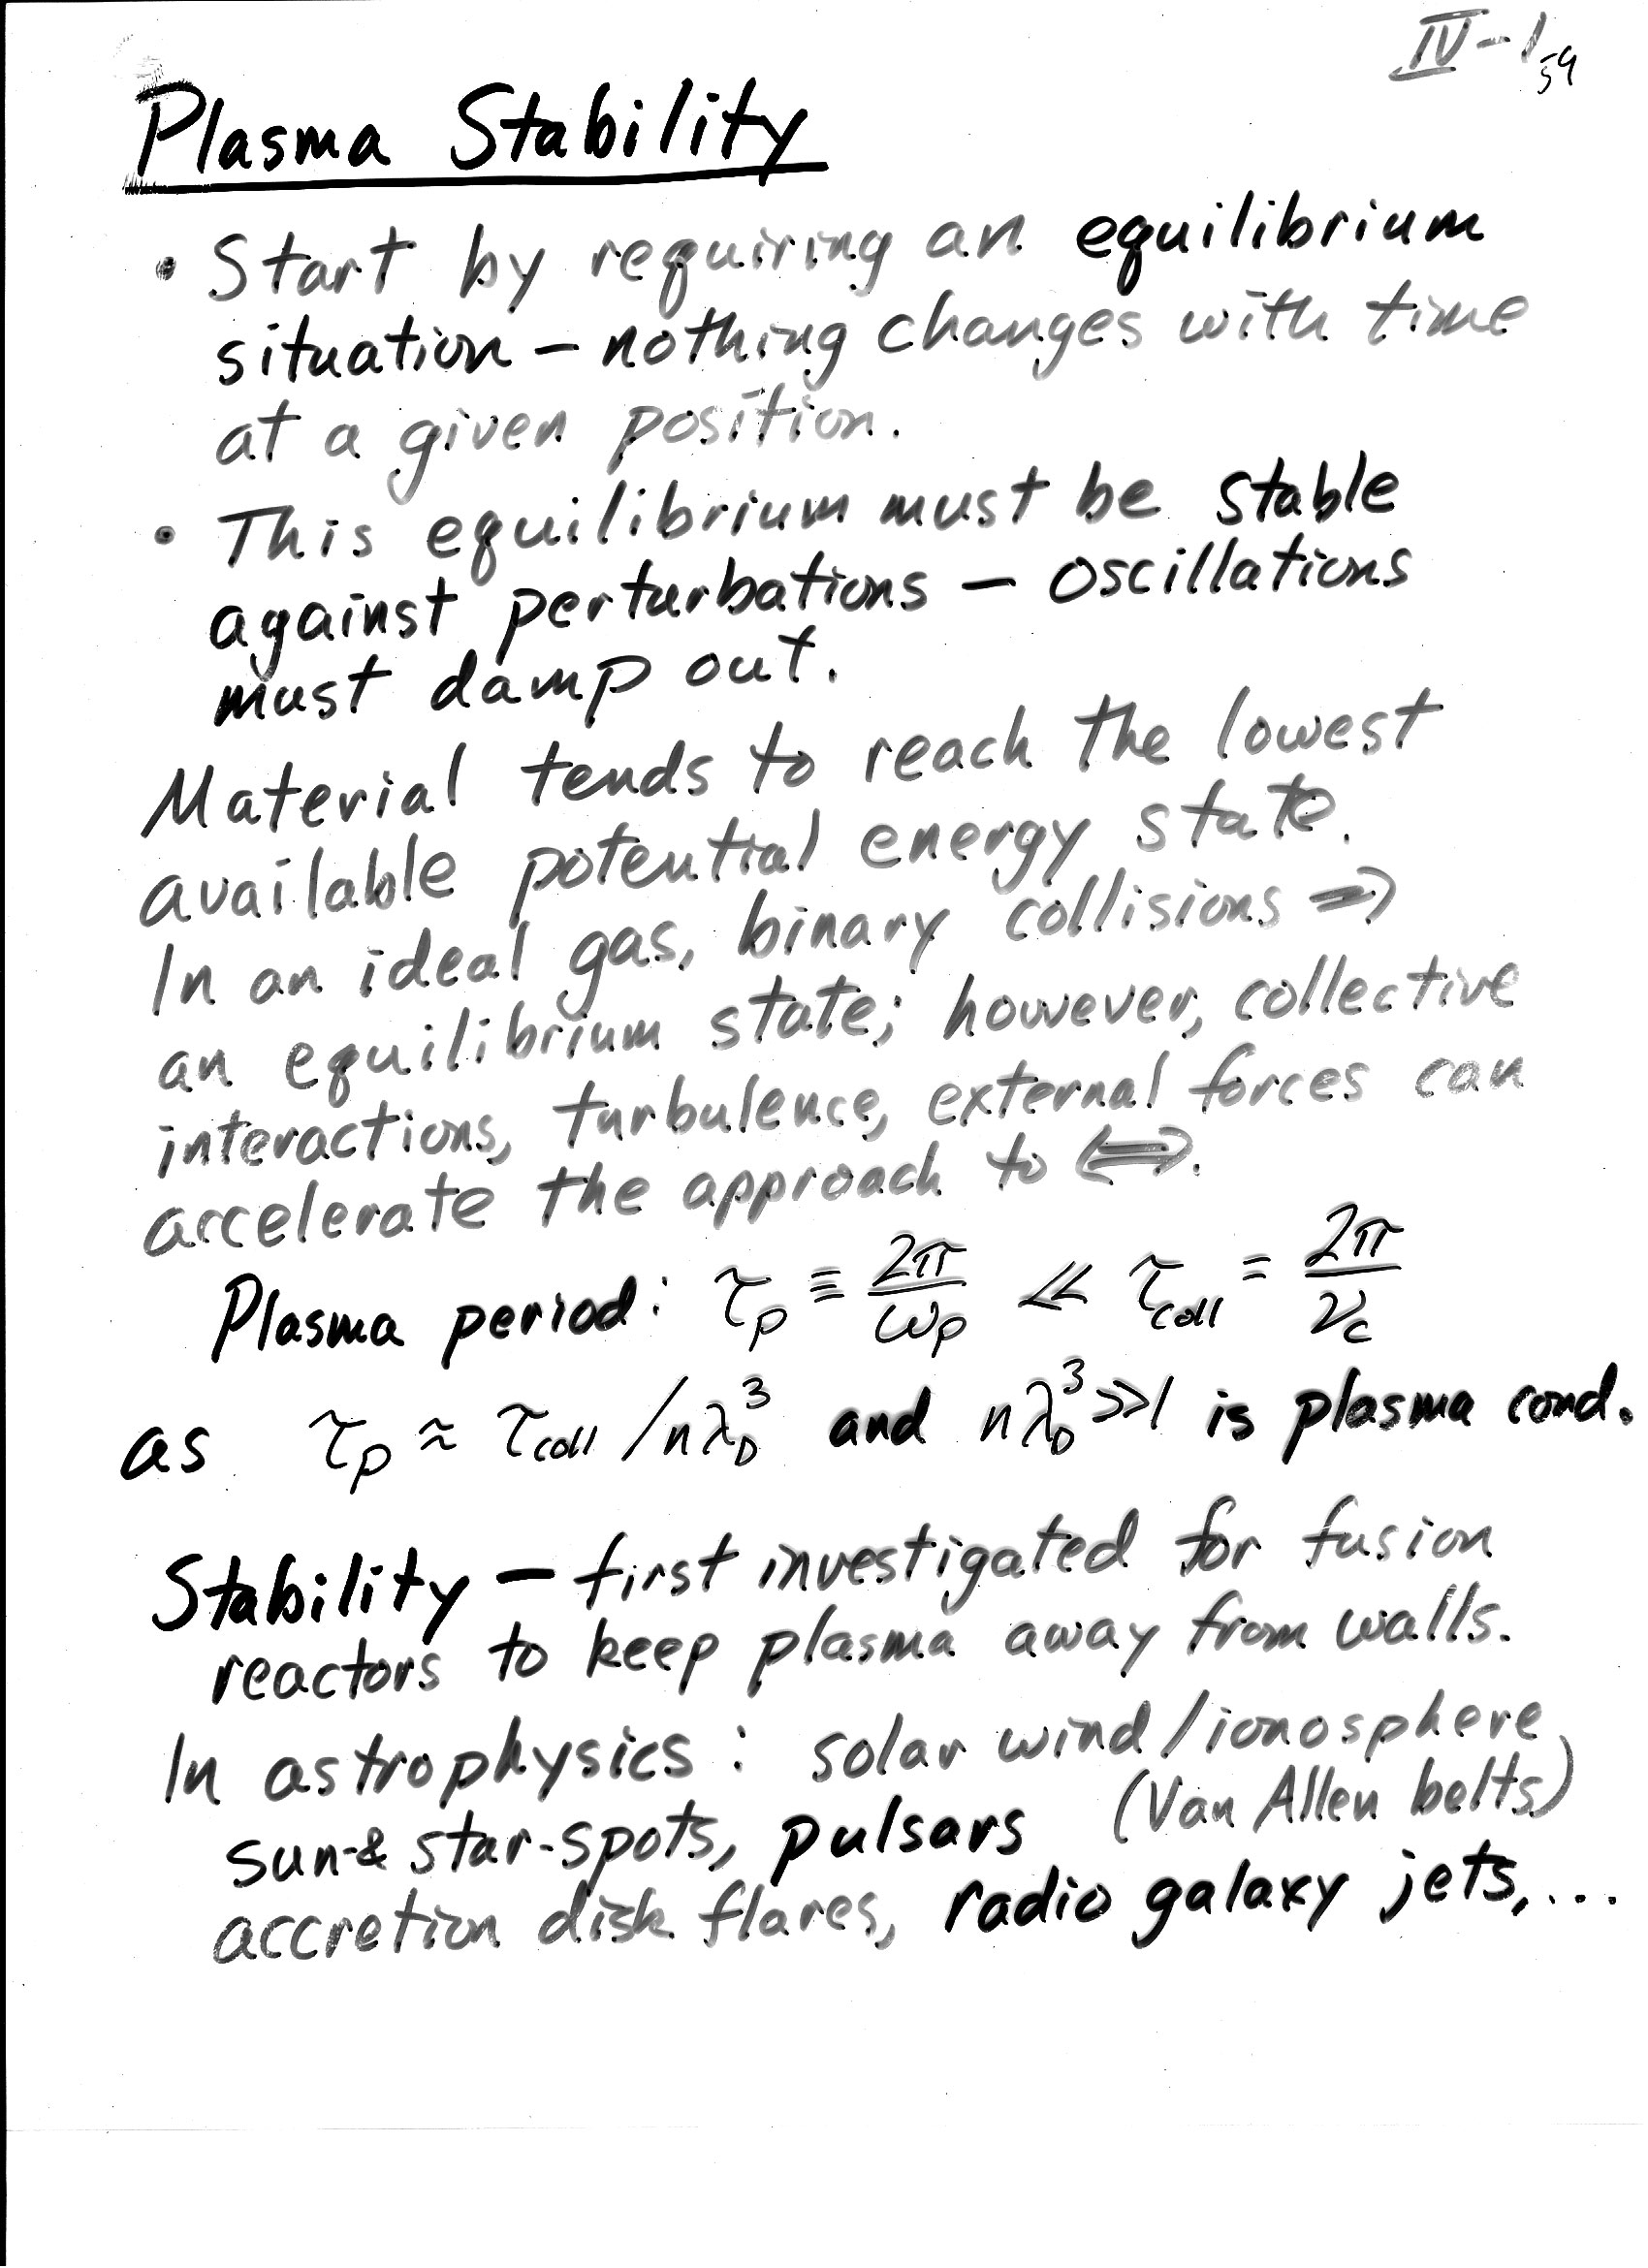 IV-1 59
Plasma Stability
• Start by requiring an equilibrium
situation – nothing changes with time
at a given position.
• This equilibrium must be stable
against perturbations – oscillations
must damp out.
Material tends to reach the lowest
available potential energy state.
In an ideal gas, binary collisions ⇒
an equilibrium state; however, collective
interactions, turbulence, external forces can
accelerate the approach to ⟺.
Plasma period: τ_p ≡ 2π/ω_p ≪ τ_coll = 2π/ν_c
as τ_p ≈ τ_coll / nλ_D^3 and nλ_D^3 ≫ 1 is plasma cond.
Stability – first investigated for fusion
reactors to keep plasma away from walls.
In astrophysics: solar wind/ionosphere
(Van Allen belts)
sun-& star-spots, pulsars
accretion disk flares, radio galaxy jets,...